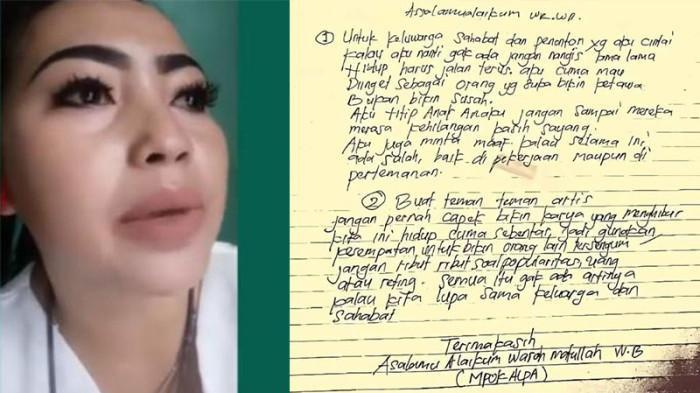 Assalamualaikum wr.wb.
① Untuk keluwarga Sahabat dan penonton yg aku cintai
kalau aku nanti gak ada jangan nangis lama lama
Hidup harus jalan terus. aku cuma mau
Diinget sebagai orang yg suka bikin ketawa
Bukan bikin susah.
Aku titip Anak Anaku jangan sampai mereka
merasa kehilangan kasih sayang.
Aku juga minta maaf kalau selama ini,
ada salah, baik di pekerjaan maupun di
pertemanan.
② Buat teman teman artis
jangan pernah capek bikin karya yang menghibur
kita ini hidup cuma sebentar, Jadi gunakan
kesempatan untuk bikin orang lain tersenyum
jangan ribut ribut soal popularitas, uang
atau reting. Semua itu gak ada artinya
kalau kita lupa sama keluarga dan
Sahabat
Terimakasih
Asalamu Alaikum Warah matullah W.B
(MPOK ALPA)